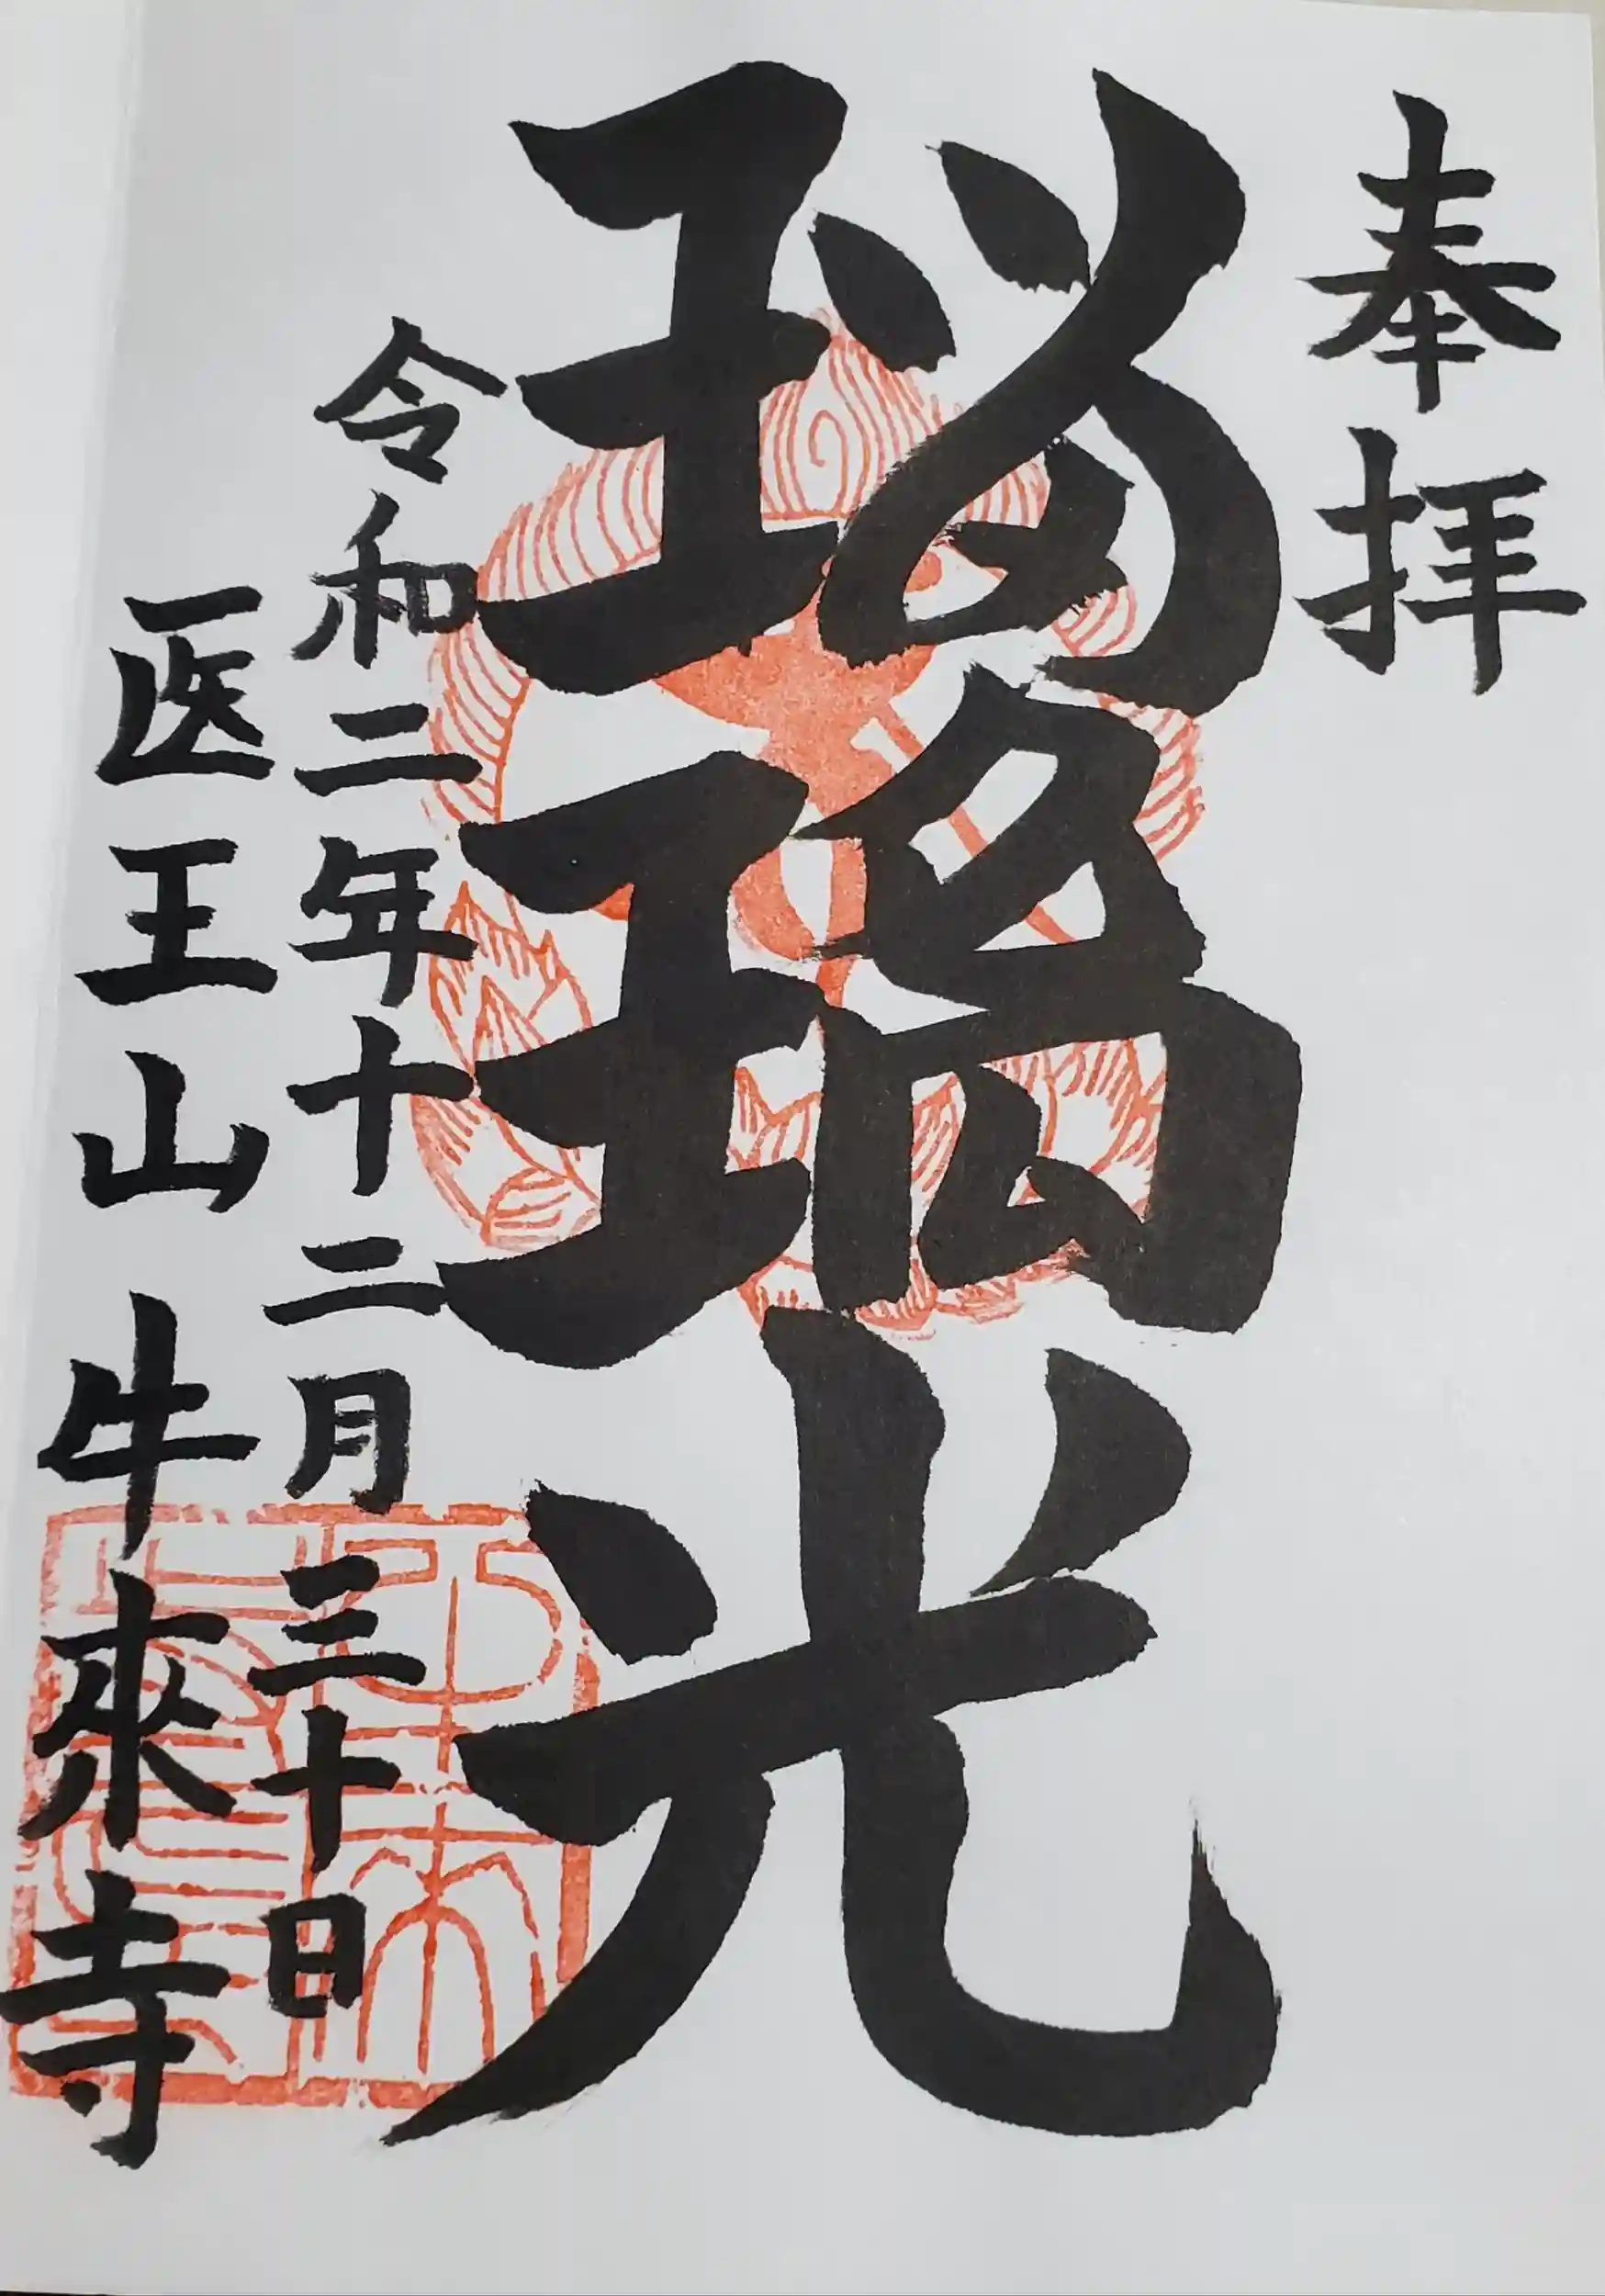 奉拝
瑠璃光
令和二年十二月三十日
医王山 牛來寺